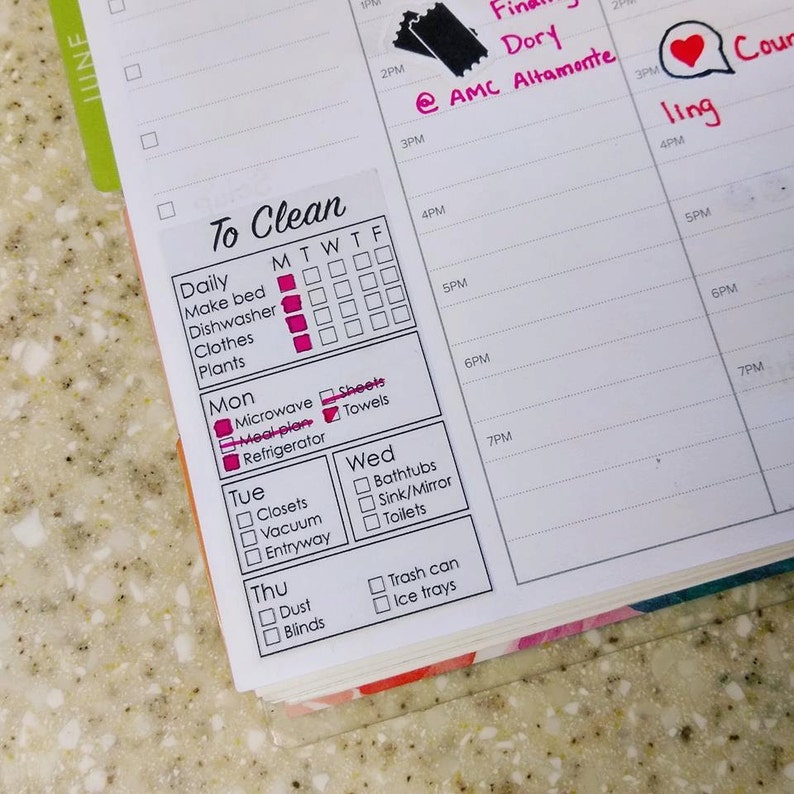 JUNE
1PM
2PM
Finding
Dory
@ AMC Altamonte
3PM
4PM
5PM
6PM
7PM
2PM
3PM
Coun
ling
4PM
5PM
6PM
7PM
To Clean
M T W T F
Daily
Make bed
Dishwasher
Clothes
Plants
Mon
Microwave
Meal plan
Refrigerator
Sheets
Towels
Tue
Closets
Vacuum
Entryway
Wed
Bathtubs
Sink/Mirror
Toilets
Thu
Dust
Blinds
Trash can
Ice trays